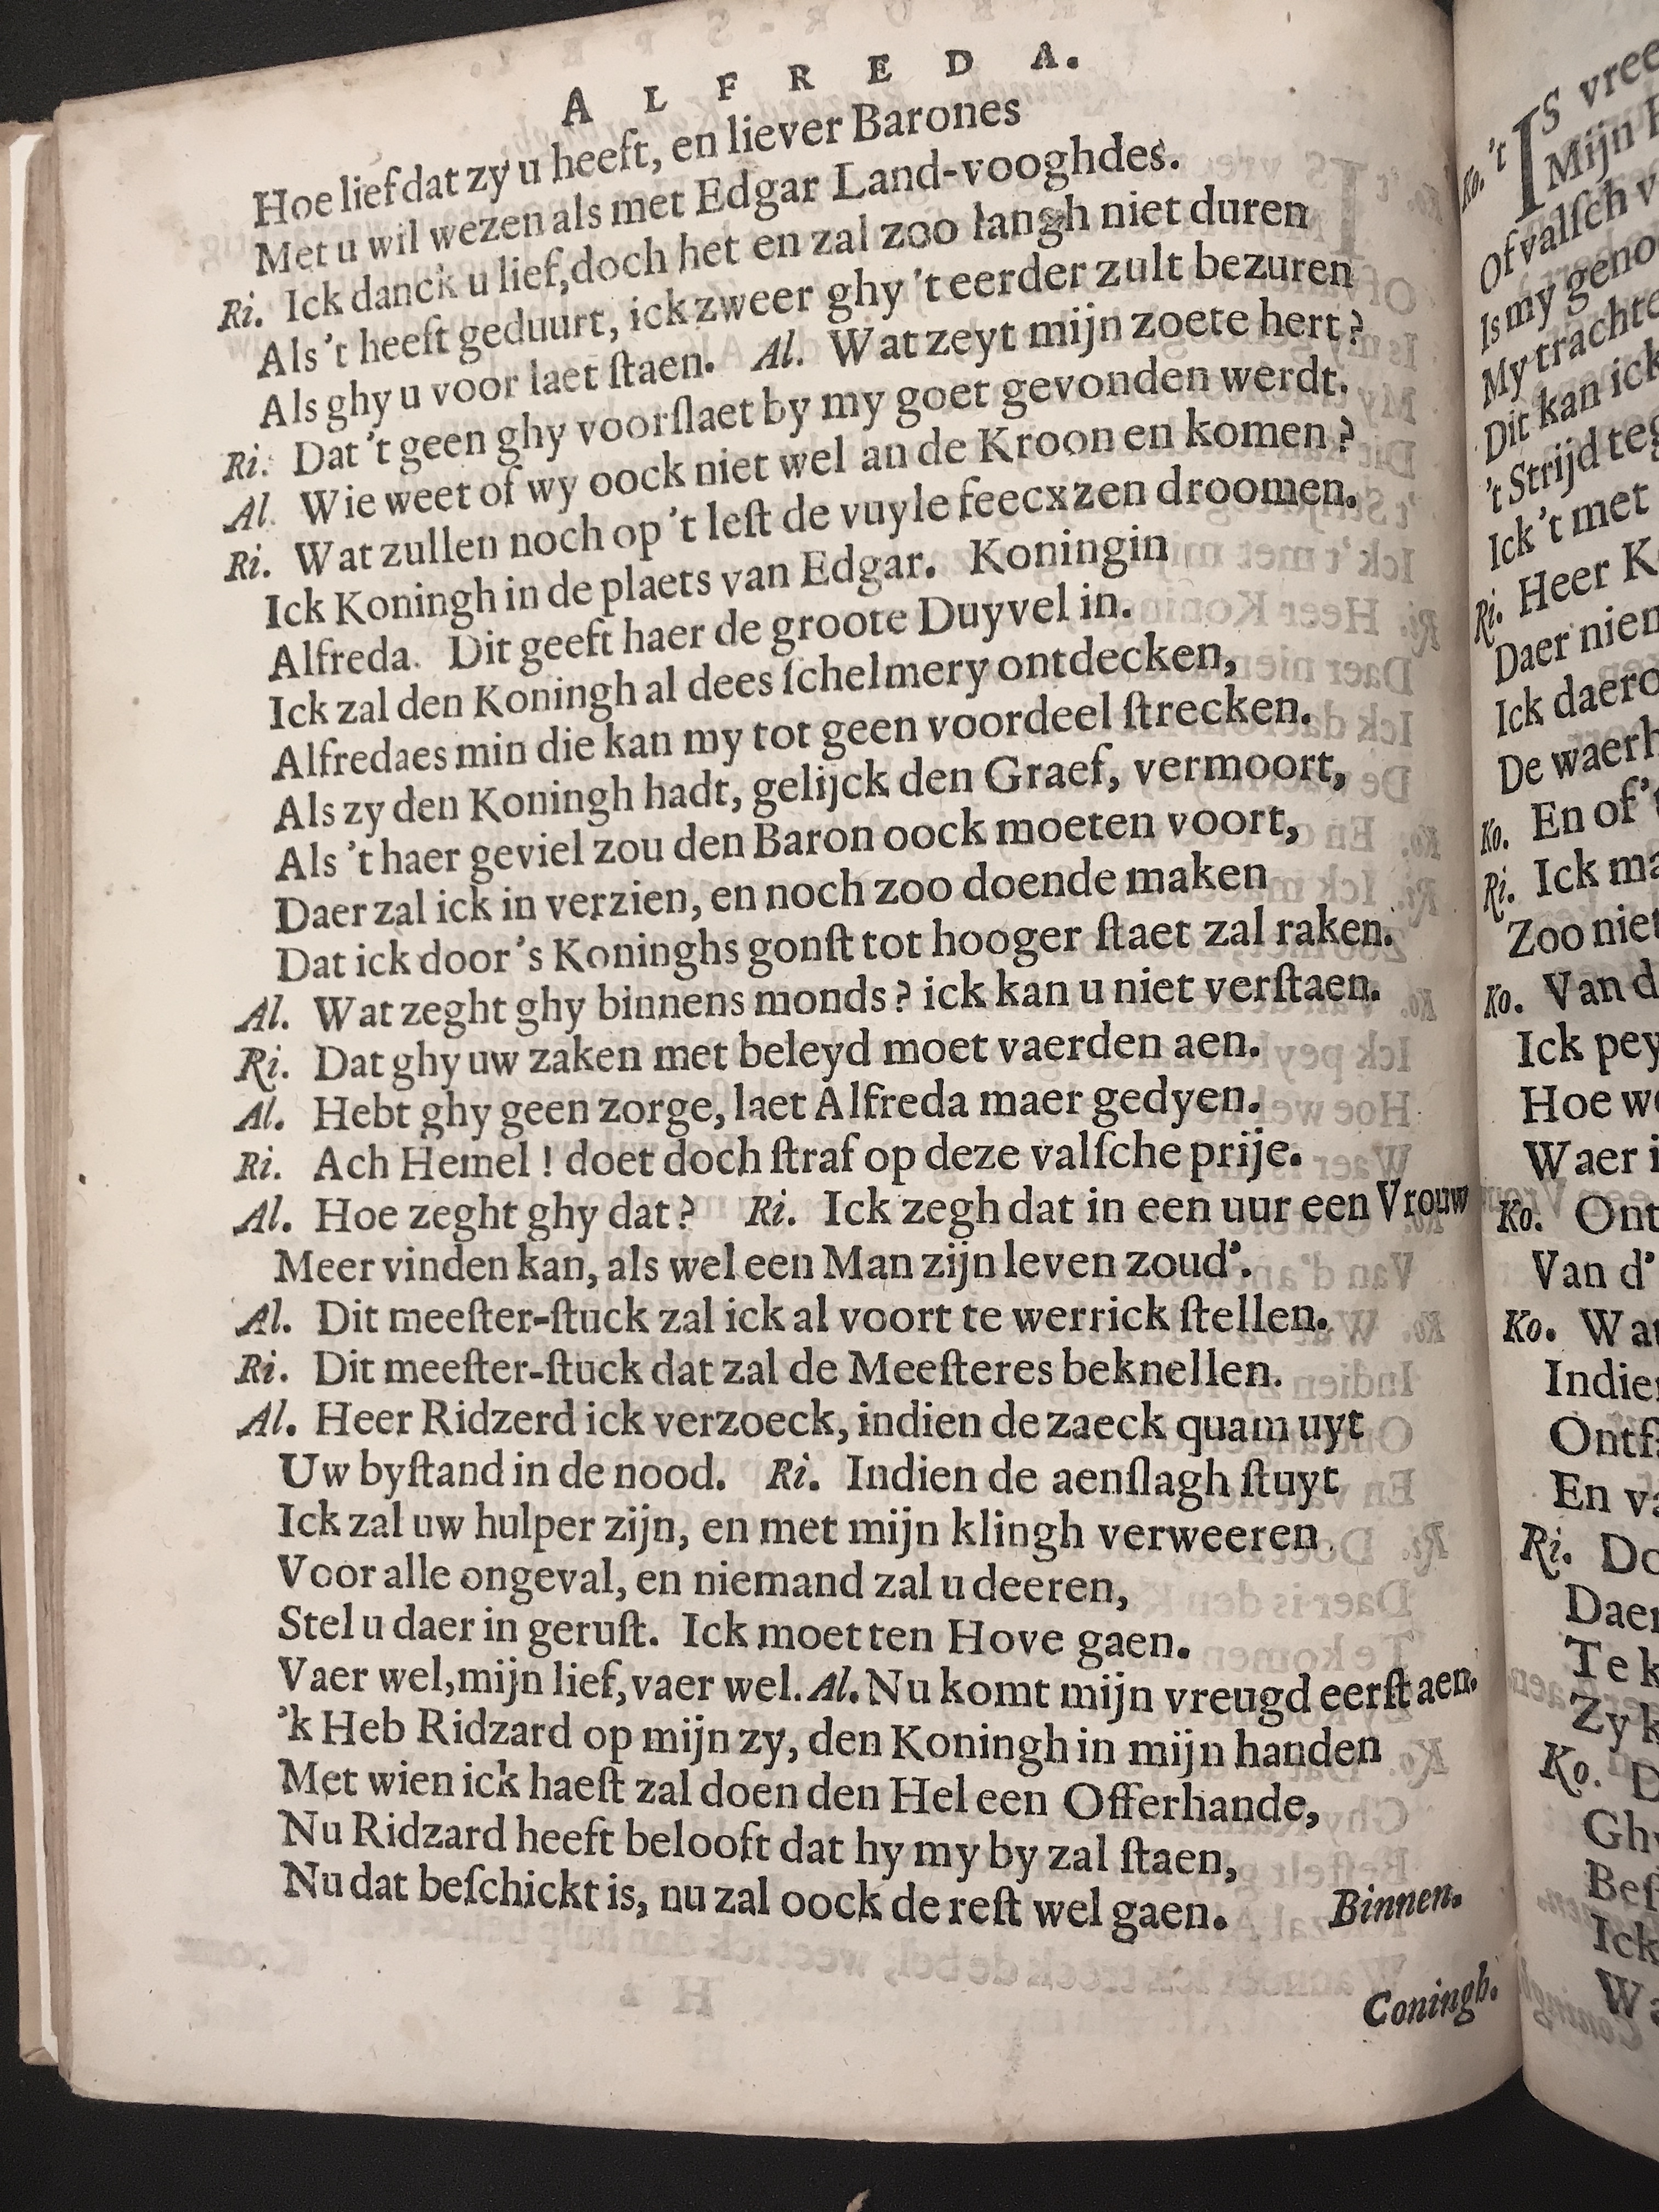 ALFREDA.
Hoe lief dat zy u heeft, en liever Barones
Met u wil wezen als met Edgar Land-vooghdes.
Ri. Ick danck u lief, doch het en zal zoo langh niet duren
Als 't heeft geduurt, ick zweer ghy 't eerder zult bezuren
Als ghy u voor laet ſtaen. Al. Wat zeyt mijn zoete hert?
Ri. Dat 't geen ghy voorſlaet by my goet gevonden werdt.
Al. Wie weet of wy oock niet wel an de Kroon en komen?
Ri. Wat zullen noch op 't leſt de vuyle feecxzen droomen.
Ick Koningh in de plaets van Edgar. Koningin
Alfreda. Dit geeft haer de groote Duyvel in.
Ick zal den Koningh al dees ſchelmery ontdecken,
Alfredaes min die kan my tot geen voordeel ſtrecken.
Als zy den Koningh hadt, gelijck den Graef, vermoort,
Als 't haer geviel zou den Baron oock moeten voort,
Daer zal ick in verzien, en noch zoo doende maken
Dat ick door 's Koninghs gonſt tot hooger ſtaet zal raken.
Al. Wat zeght ghy binnens monds? ick kan u niet verſtaen.
Ri. Dat ghy uw zaken met beleyd moet vaerden aen.
Al. Hebt ghy geen zorge, laet Alfreda maer gedyen.
Ri. Ach Hemel! doet doch ſtraf op deze valſche prije.
Al. Hoe zeght ghy dat? Ri. Ick zegh dat in een uur een Vrouw
Meer vinden kan, als wel een Man zijn leven zoud'.
Al. Dit meeſter-ſtuck zal ick al voort te werrick ſtellen.
Ri. Dit meeſter-ſtuck dat zal de Meeſteres beknellen.
Al. Heer Ridzerd ick verzoeck, indien de zaeck quam uyt
Uw byſtand in de nood. Ri. Indien de aenſlagh ſtuyt
Ick zal uw hulper zijn, en met mijn klingh verweeren
Voor alle ongeval, en niemand zal u deeren,
Stel u daer in geruſt. Ick moet ten Hove gaen.
Vaer wel, mijn lief, vaer wel. Al. Nu komt mijn vreugd eerſt aen.
'k Heb Ridzard op mijn zy, den Koningh in mijn handen
Met wien ick haeſt zal doen den Hel een Offerhande,
Nu Ridzard heeft belooft dat hy my by zal ſtaen,
Nu dat beſchickt is, nu zal oock de reſt wel gaen. Binnen.
Coningh.
Ko. 't IS vree
Mijn
Of valſch v
Is my geno
My trachte
Dit kan ick
't Strijd teg
Ick 't met
Ri. Heer K
Daer nien
Ick daero
De waerh
Ko. En of 't
Ri. Ick ma
Zoo niet
Ko. Van d
Ick pey
Hoe we
Waer i
Ko. Ont
Van d'
Ko. Wat
Indie
Ontf
En va
Ri. Do
Daer
Te k
Zy k
Ko. D
Ghy
Beſ
Ick
Wa